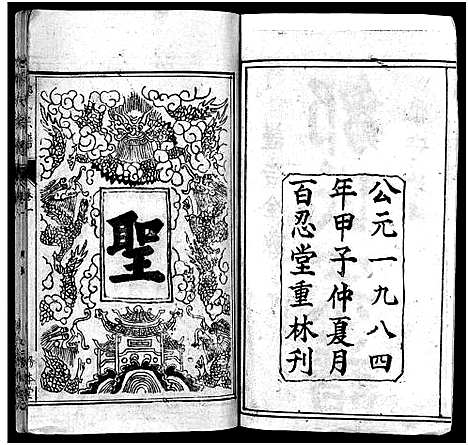 公元一九八四
年甲子仲夏月
百忍堂重林刊
聖